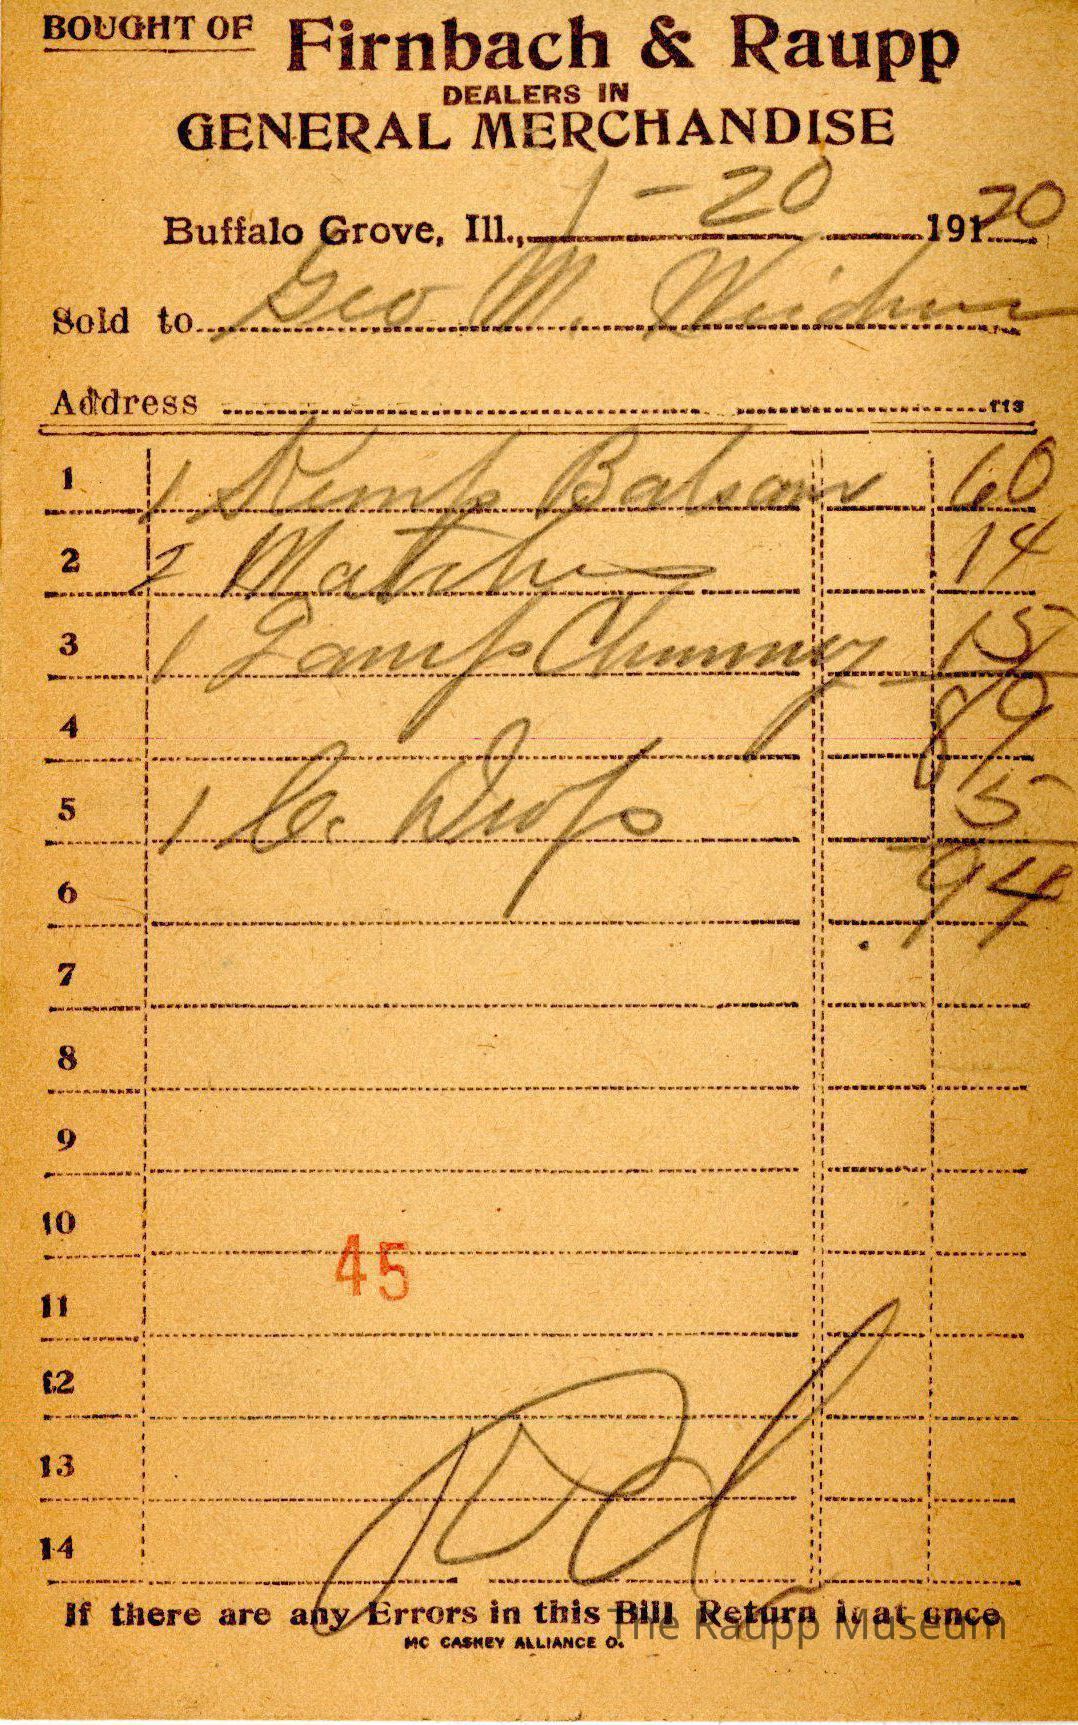 BOUGHT OF Firnbach & Raupp
DEALERS IN
GENERAL MERCHANDISE
Buffalo Grove, Ill., 1-20 191 20
Sold to Geo M. Weidner
Address 113
1 1 Kemps Balsam 60
2 2 Matches 14
3 1 Lamp Chimney 15
4 89
5 1 C. Drops 5
6 .94
7
8
9
10
45
11
12
13
14 Pd
If there are any Errors in this Bill Return it at once
MC CASKEY ALLIANCE O.
The Raupp Museum